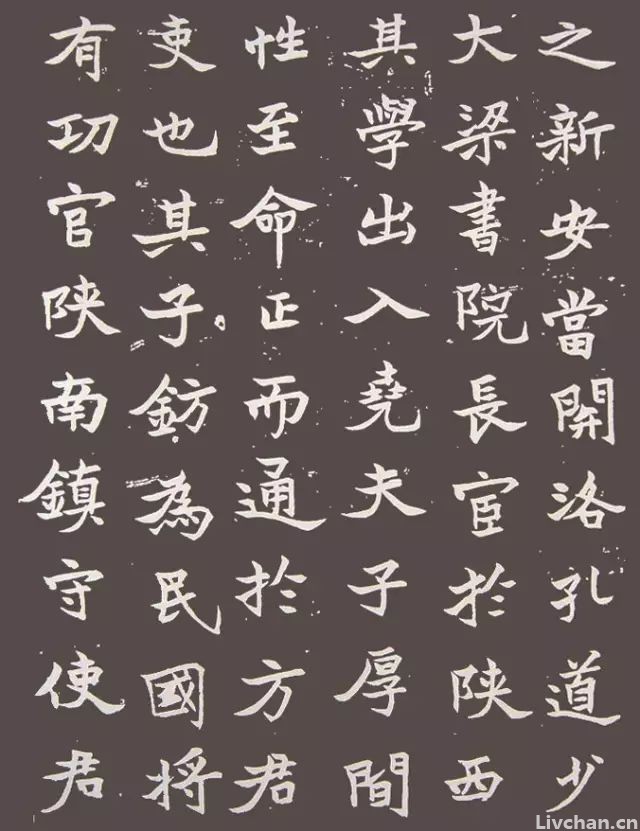 之新安當開洛孔道少
大梁書院長宦於陝西
其學出入堯夫子厚間
性至命正而通於方君
吏也其子鈁為民國將
有功官陝南鎮守使君
Livchan.cn